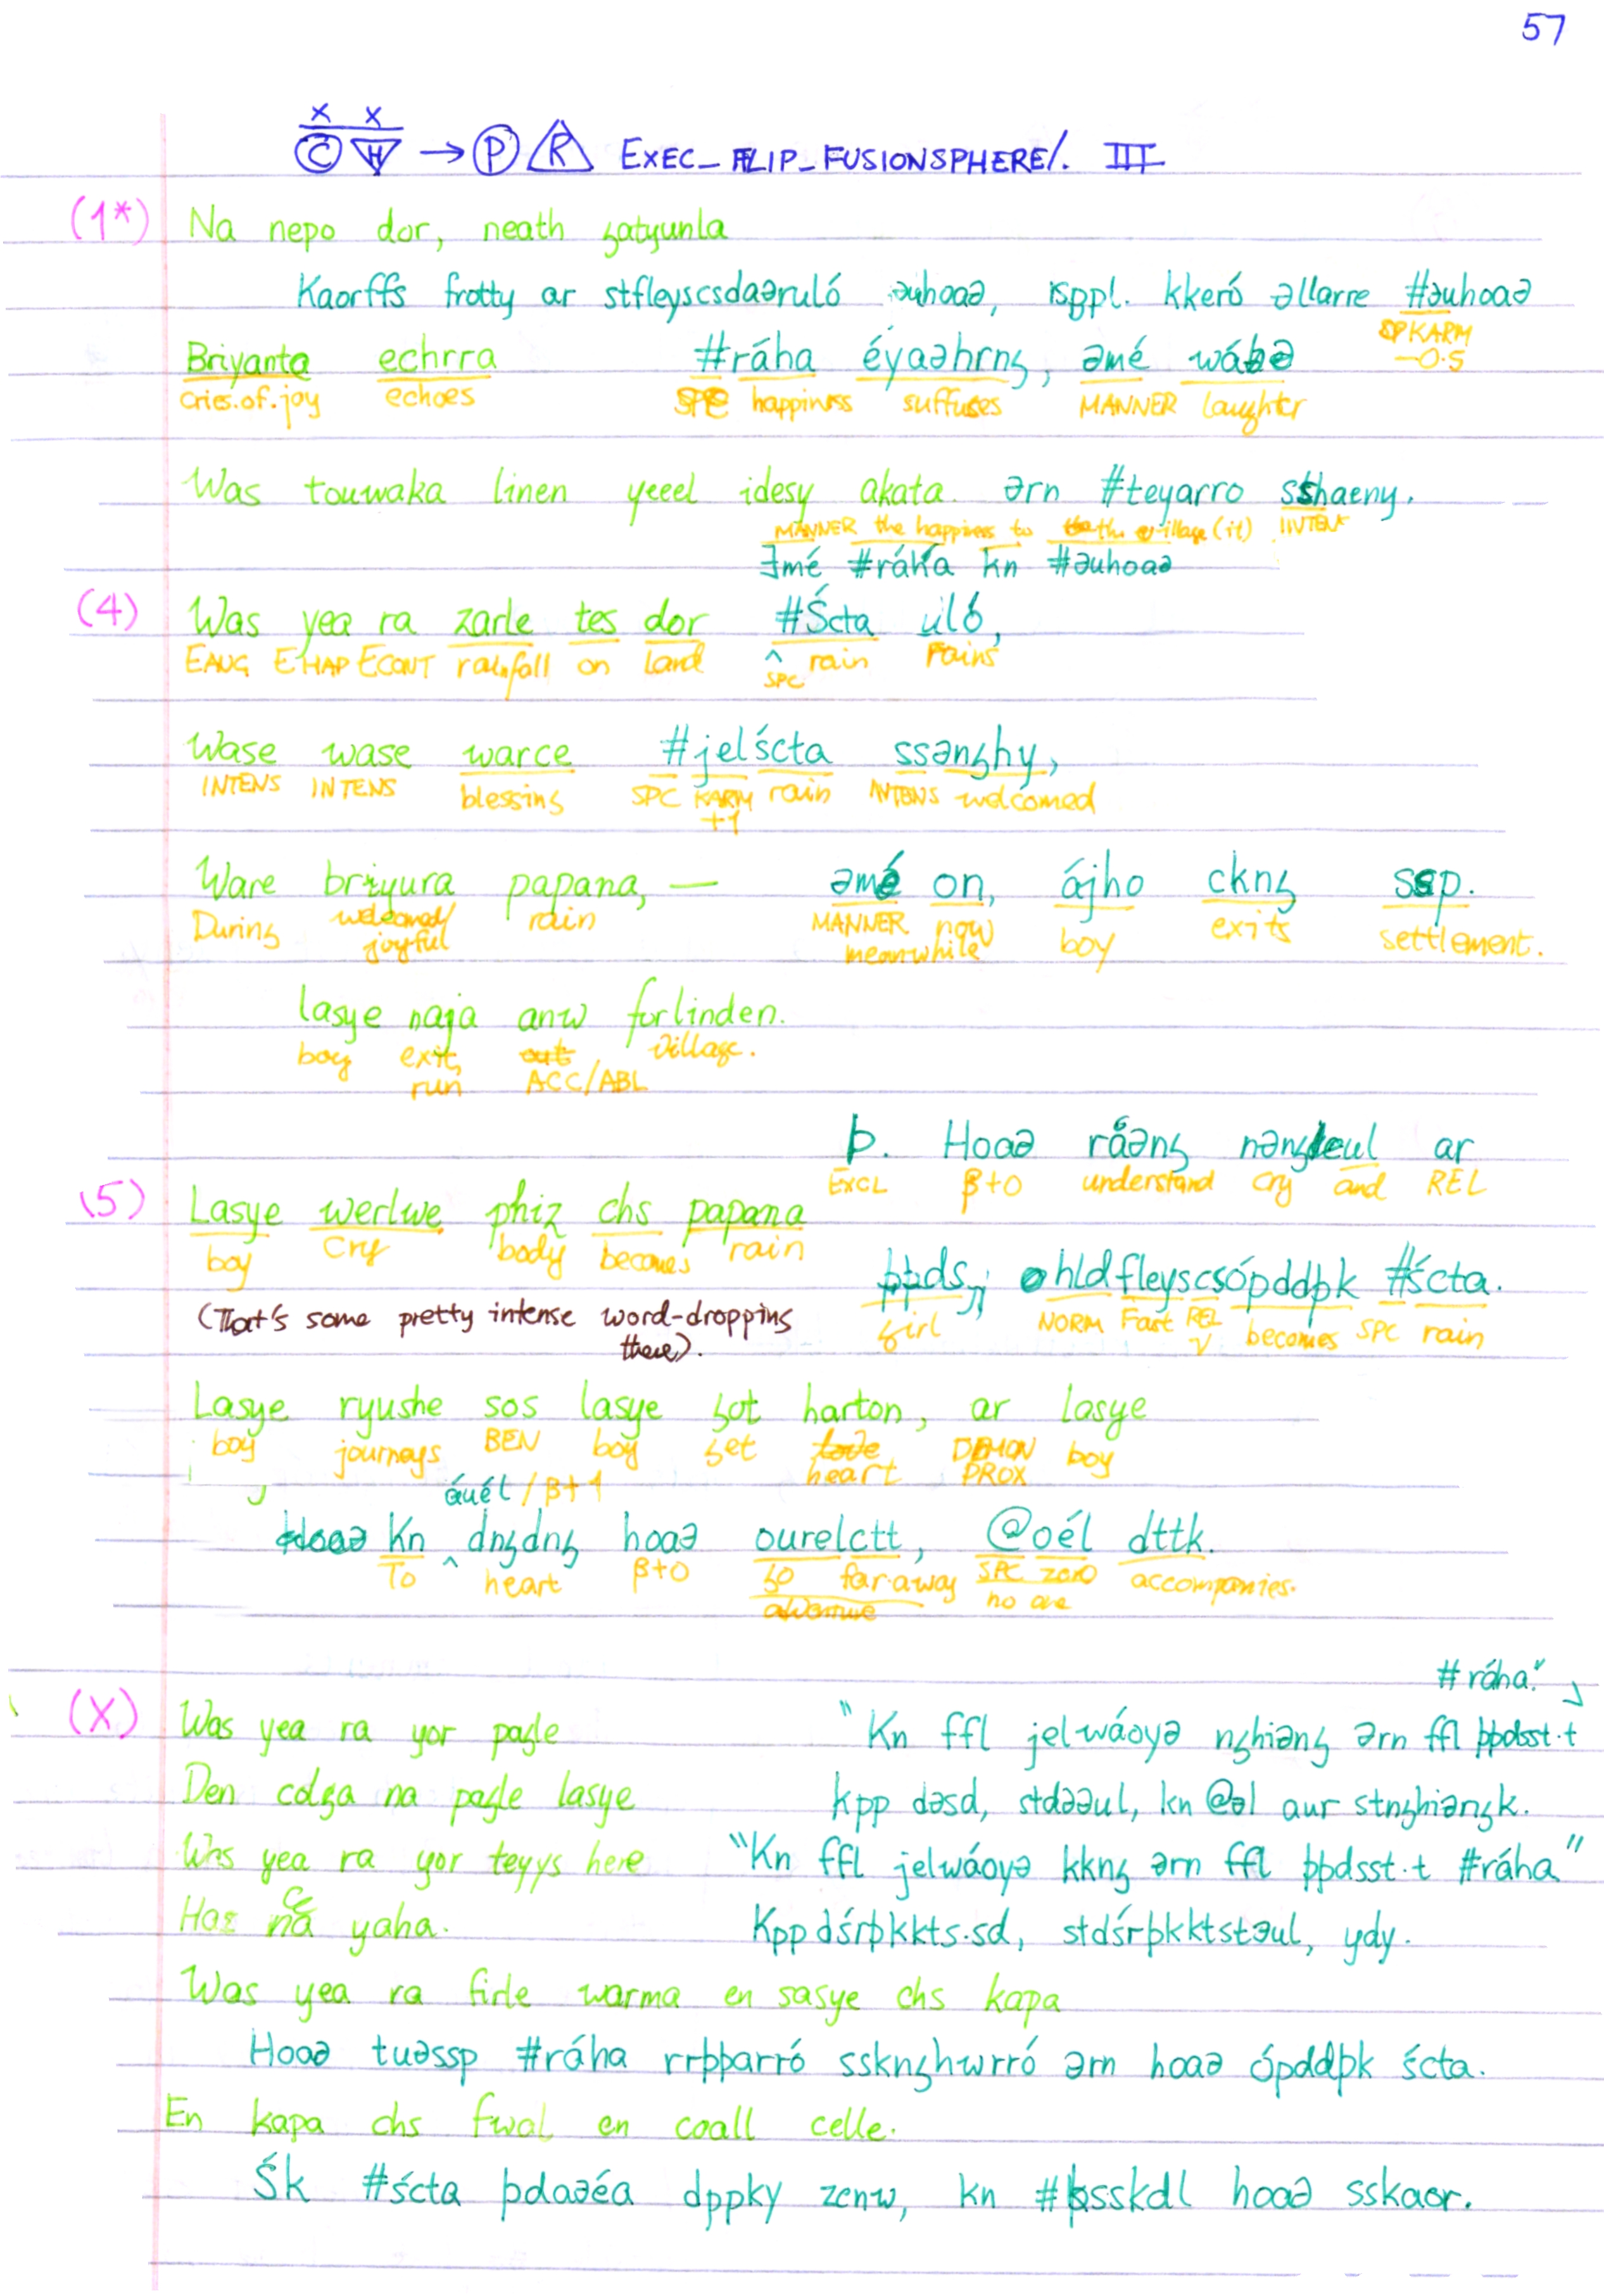 57
X X
C H → P R EXEC_FLIP_FUSIONSPHERE/. III
(1*) Na nepo dor, neath ʒatyunla
Kaorffs frotty ar stfleyscsdaəruló əuhoaə, kkeró əllarre #əuhoaə
SPKARM
-0.5
Briyante echrra #ráha éyaəhrnʒ, əmé wábə
cries.of.joy echoes SPC happiness suffuses MANNER laughter
Was touwaka linen yeeel idesy akata. ərn #teyarro sshaeny.
MANNER the happiness to the village (it) INTENS
Əmé #ráha kn #əuhoaə
(4) Was yea ra zarle tes dor #Ścta úló,
EAUG EHAP ECONT rainfall on land SPC rain rains
Wase wase warce #jelścta ssənʒhy,
INTENS INTENS blessing SPC KARM rain INTENS welcomed
+1
Ware briyura papana, — əmé on, ájho cknʒ ssp.
During welcomed/ rain MANNER now boy exits settlement.
joyful meanwhile
lasye naja anw forlinden.
boy exit, out village.
run ACC/ABL
þ. Hoaə ráənʒ nənʒleul ar
EXCL β+0 understand cry and REL
(5) Lasye werlwe phiz chs papana
boy cry body becomes rain
þþds,; hldfleyscsópddþk #ścta.
girl NORM Fast REL becomes SPC rain
V
(That's some pretty intense word-dropping
there).
Lasye ryushe sos lasye ʒot harton, ar lasye
boy journeys BEN boy get love DEMON boy
heart PROX
áuél / β+1
Hoaə Kn ^ dnʒdnʒ hoaə ourelctt, @oél dttk.
To heart β+0 so far.away SPC zero accompanies.
no one
#ráha."
(X) Was yea ra yor paʒle "Kn ffl jelwáoyə nʒhiənʒ ərn ffl þþdsst.t
Den colga na paʒle lasye kpp dəsd, stdəəul, kn @əl aur stnʒhiənʒk.
Was yea ra yor teyys here "Kn ffl jelwáoyə kknʒ ərn ffl þþdsst.t #ráha"
Has na ce yaha. Kppdśrþkkts.sd, stdśrþkktstəul, ydy.
Was yea ra firle warma en sasye chs kapa
Hoaə tuəssp #ráha rrþþarró sskнʒhwrró ərn hoaə ópddþk ścta.
En kapa chs fwal en coall celle.
Śk #ścta þdaəéa dppky zcnw, kn #þsskdl hoaə sskaor.